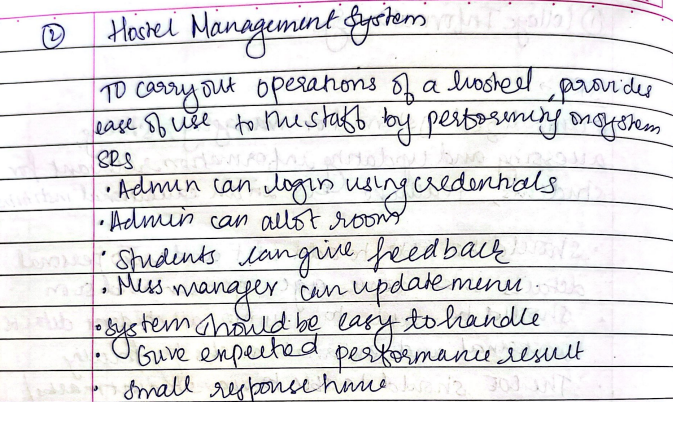 ② Hostel Management System
To carry out operations of a hosteel, provides
ease of use to the staff by performing on system
SRS
• Admin can login using credentials
• Admin can allot rooms
• Students can give feedback
• Mess manager can update menu.
• System should be easy to handle
• Give expected performance result
• Small response time